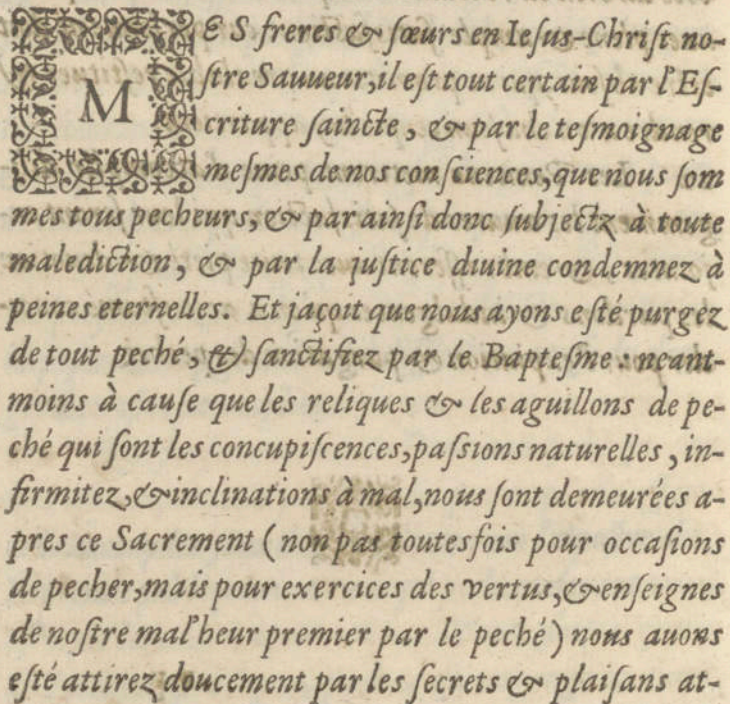 MES freres & sœurs en Iesus-Christ no-
stre Sauueur, il est tout certain par l'Es-
criture saincte, & par le tesmoignage
mesmes de nos consciences, que nous som
mes tous pecheurs, & par ainsi donc subjectz à toute
malediction, & par la justice diuine condemnez à
peines eternelles. Et jaçoit que nous ayons esté purgez
de tout peché, & sanctifiez par le Baptesme : neant-
moins à cause que les reliques & les aguillons de pe-
ché qui sont les concupiscences, passions naturelles, in-
firmitez, & inclinations à mal, nous sont demeurées a-
pres ce Sacrement ( non pas toutesfois pour occasions
de pecher, mais pour exercices des vertus, & enseignes
de nostre mal'heur premier par le peché ) nous auons
esté attirez doucement par les secrets & plaisans at-